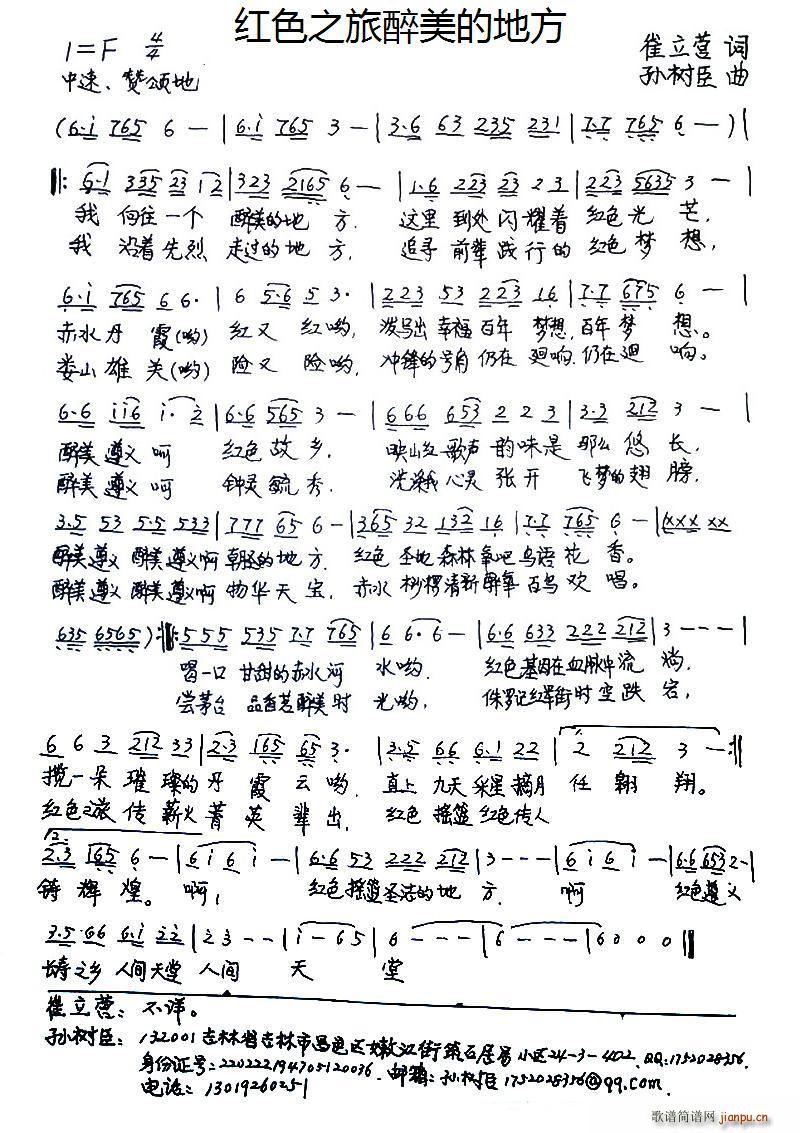 红色之旅醉美的地方
1=F 4/4
崔立营 词
中速、赞颂地
孙树臣 曲
(6·i 765 6 — | 6·i 765 3 — | 3·6 63 235 231 | 7·7 765 6 — )|
‖: 6·1 335 23 12 | 323 2165 6 — | 1·6 223 23 2 3 | 223 5635 3 — |
我 向往一个 醉美的地 方, 这里 到处闪耀着 红色光 芒,
我 沿着先烈 走过的地 方, 追寻 前辈践行的 红色梦 想,
6·i 765 6 6· | 6 5·6 5 3· | 223 53 223 16 | 7·7 675 6 — |
赤水丹 霞(哟) 红又 红哟, 泼写出 幸福 百年 梦想,百年 梦 想。
娄山雄 关(哟) 险又 险哟, 冲锋的号角 仍在 迴响,仍在迴 响。
6·6 ii6 i· 2 | 6·6 565 3 — | 666 653 2 2 3 | 3·3 212 3 — |
醉美 遵义 呵 红色 故 乡, 映山红 歌声 韵味是 那么 悠 长,
醉美 遵义 呵 钟灵 毓 秀, 洗涤我 心灵 张开 飞梦的翅 膀,
3·5 53 5·5 533 | 777 65 6 — | 365 32 132 16 | 7·7 765 6 — | xxx xx
醉美 遵义 醉美 遵义啊 朝圣的地 方, 红色 圣地 森林氧吧 鸟语 花 香。
醉美 遵义 醉美 遵义啊 物华天 宝, 赤水 桫椤清新醉氧 百鸟 欢 唱。
635 6565 ) :‖: 555 535 7·7 765 | 6 6· 6 — | 6·6 633 222 212 | 3 — — — |
喝一口 甘甜的赤水河 水哟, 红色基因在血脉中流 淌,
尝茅台 品香茗醉美时 光哟, 侏罗记红军街时空跌 宕,
6 6 3 212 33 | 2·3 165 65 3· | 3·5 66 6·1 22 | 2 212 3 — :‖
揽一朵 璀 璨的丹 霞 云 哟, 直上 九天 采星 摘月 任 翱 翔。
红色之旅 传 薪火 菁 英 辈 出, 红色 摇篮 红色传人
2.
2·3 165 6 — | 6 i 6 i — | 6·6 53 222 212 | 3 — — — | 6 i 6 i — | 6·6 653 2 — |
铸 辉 煌。 啊, 红色摇篮圣洁的地 方, 啊 红色遵义
3·5·66 6·i 22 | 2 3 — — | i — 6 5 | 6 — — — | 6 — — — | 6 0 0 0 ‖
长寿之乡 人间天堂 人间 天 堂
崔立营: 不详。
孙树臣: 132001 吉林省吉林市昌邑区嫩江街 筑石居易小区24-3-402, QQ:1752028356.
身份证号: 220222194705120036. 邮箱: 孙树臣 1752028356@qq.com.
电话: 13019260251
歌谱简谱网
jianpu.cn